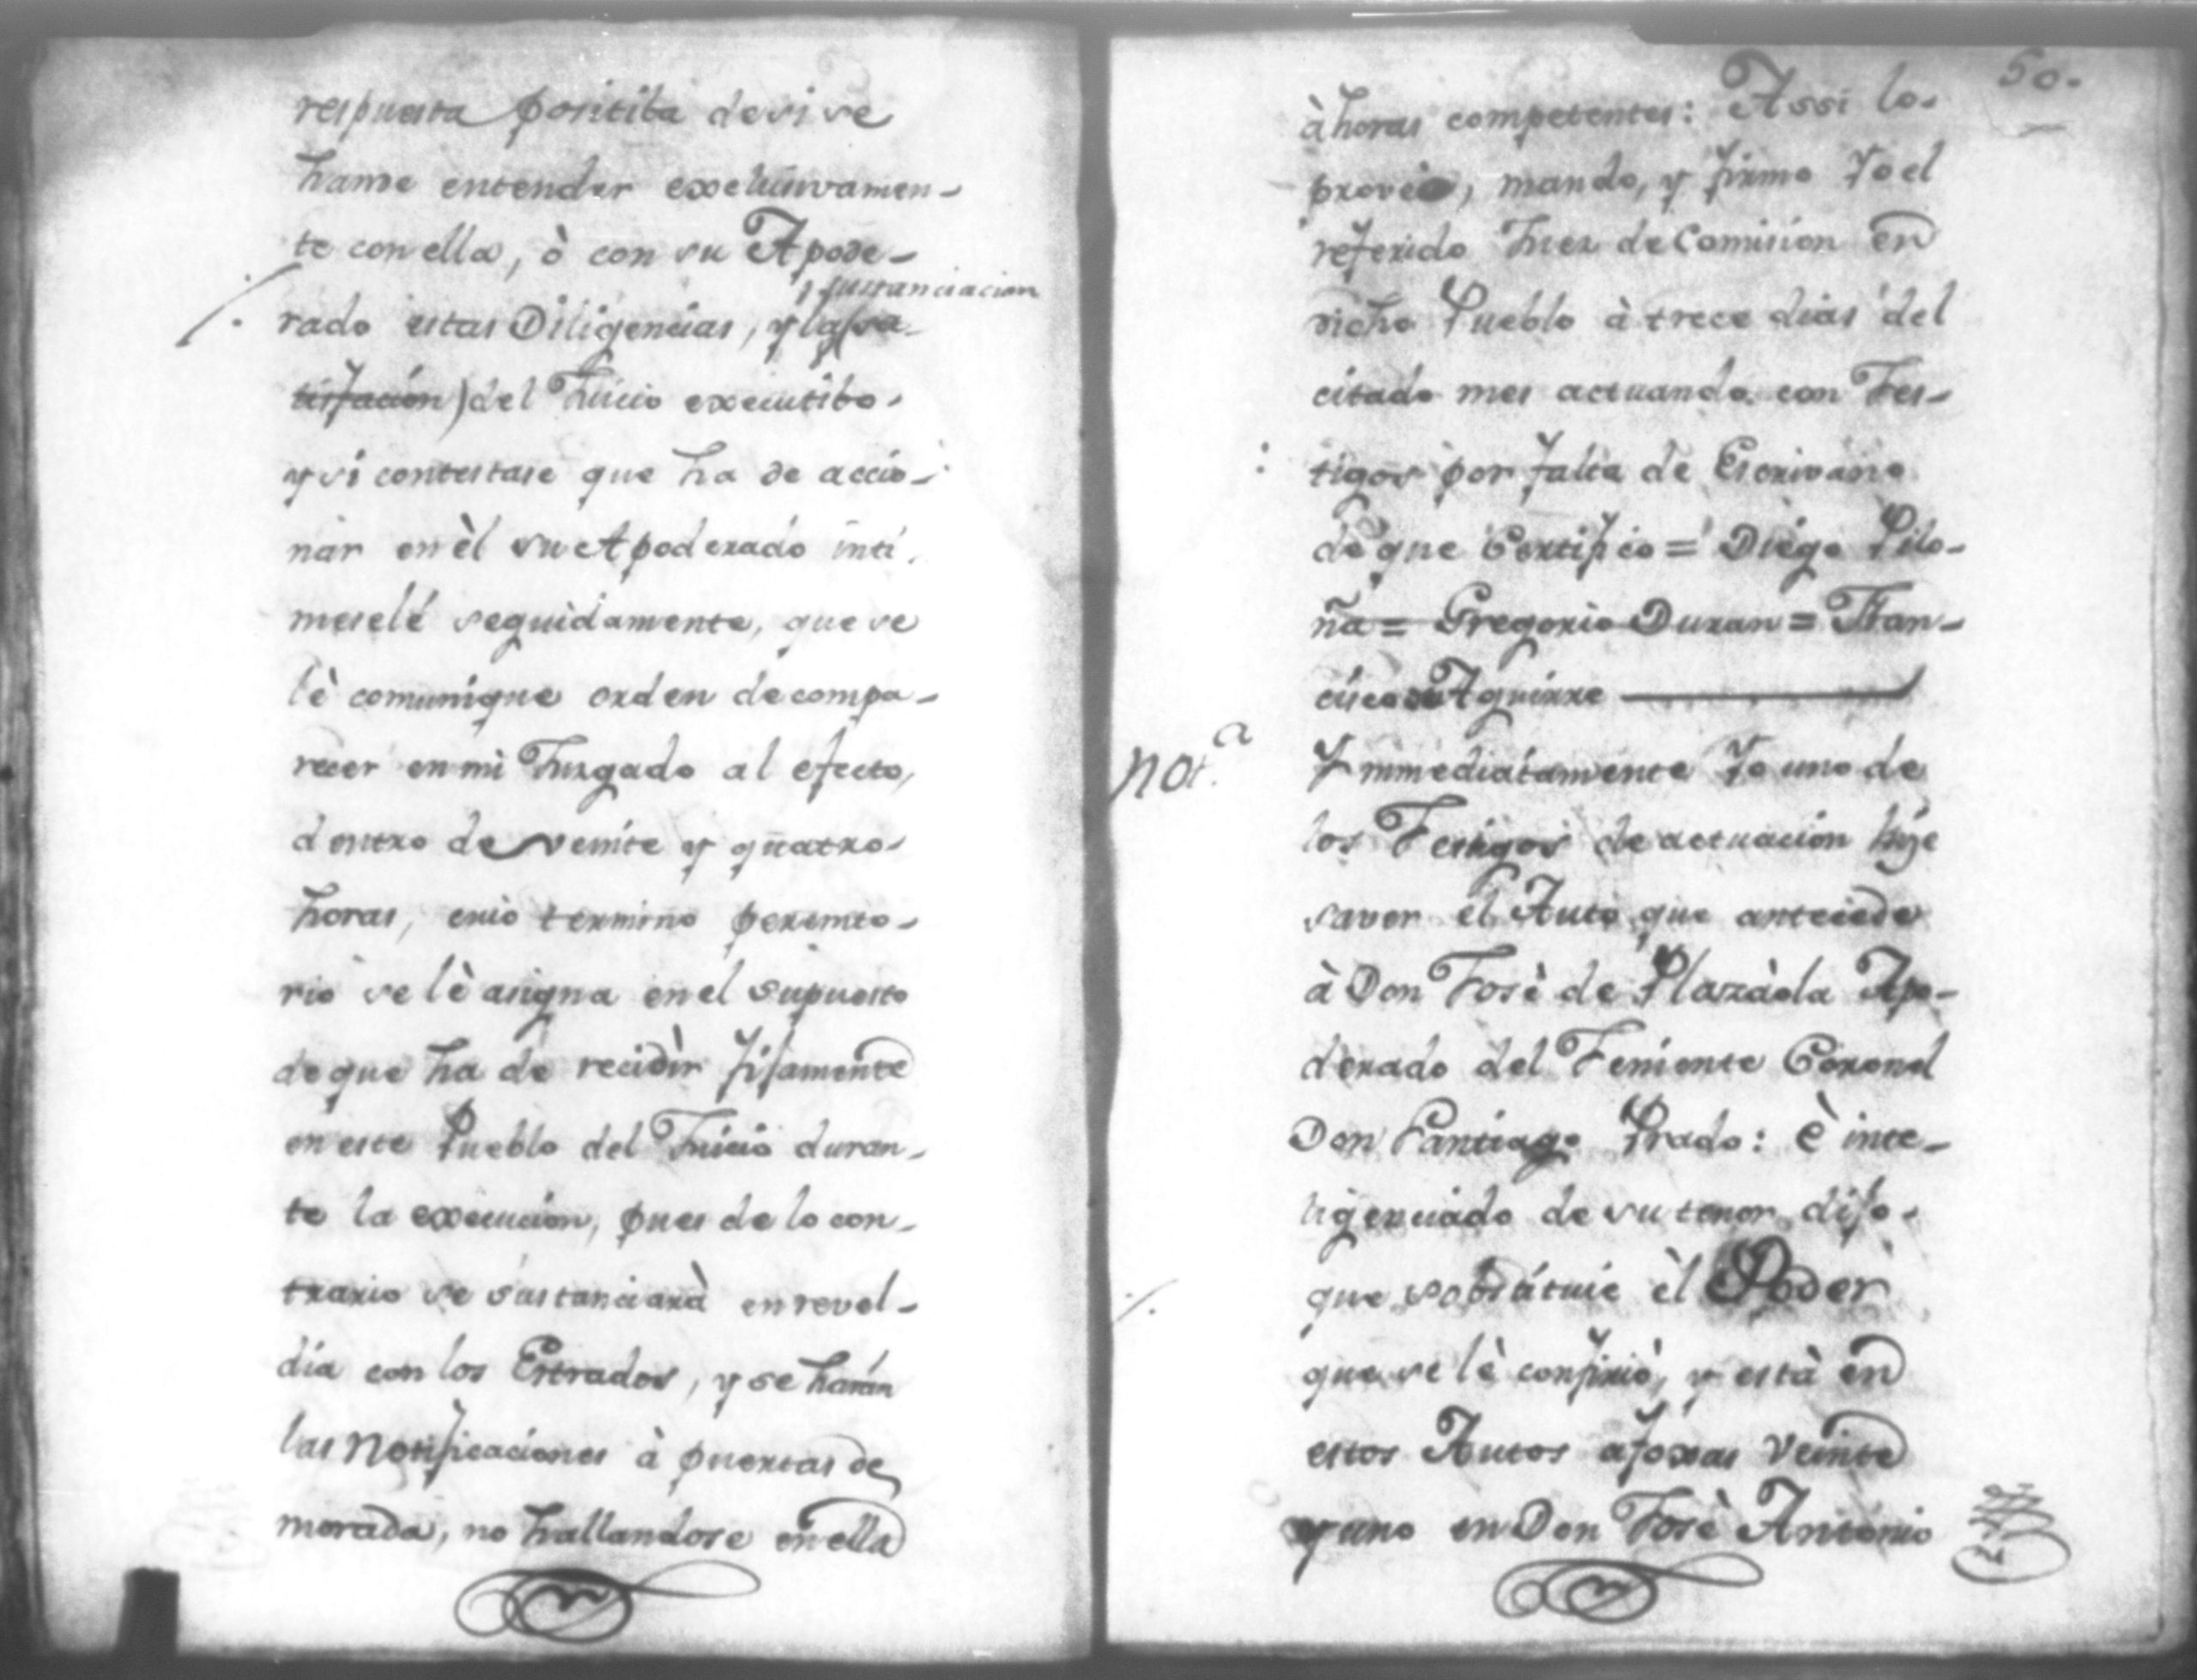 respuesta positiba de si se
hanse entender exclusivamen-
te con ella, ò con su Apode-
y sustanciacion
rado estas Diligencias, y la sa-
tisfacion) del Juicio executibo
y si contestase que ha de accio-
nar en èl su Apoderado inti-
meselé seguidamente, que se
lè comunique orden de compa-
recer en mi Juzgado al efecto,
dentro de veinte y quatro
horas, cuio termino peremto-
rio se lè asigna en el supuesto
de que ha de recidir fijamente
en este Pueblo del Juicio duran-
te la execucion, pues de lo con-
trario se sustanciarà en revel-
día con los Estrados, y se harán
las Notificaciones à puertas de
morada, no hallandose en ella
50.
à horas competentes: Assi lo
proveo, mando, y firmo Yo el
referido Juez de Comision en
dicho Pueblo à trece dias del
citado mes actuando con Tes-
tigos por falta de Escrivano
de que Certifico = Diego Pilo-
ña = Gregorio Duran = Fran-
cisco de Aguirre
Not.a
Ynmediatamente Yo uno de
los Testigos de actuacion hije
saver el Auto que antecede
à Don Josè de Plazàola Apo-
derado del Teniente Coronel
Don Santiago Prado: è inte-
ligenciado de su tenor dijo
que sobstituie èl Poder
que se lè confiriò, y està en
estos Autos afoxas veinte
y uno en Don Josè Antonio